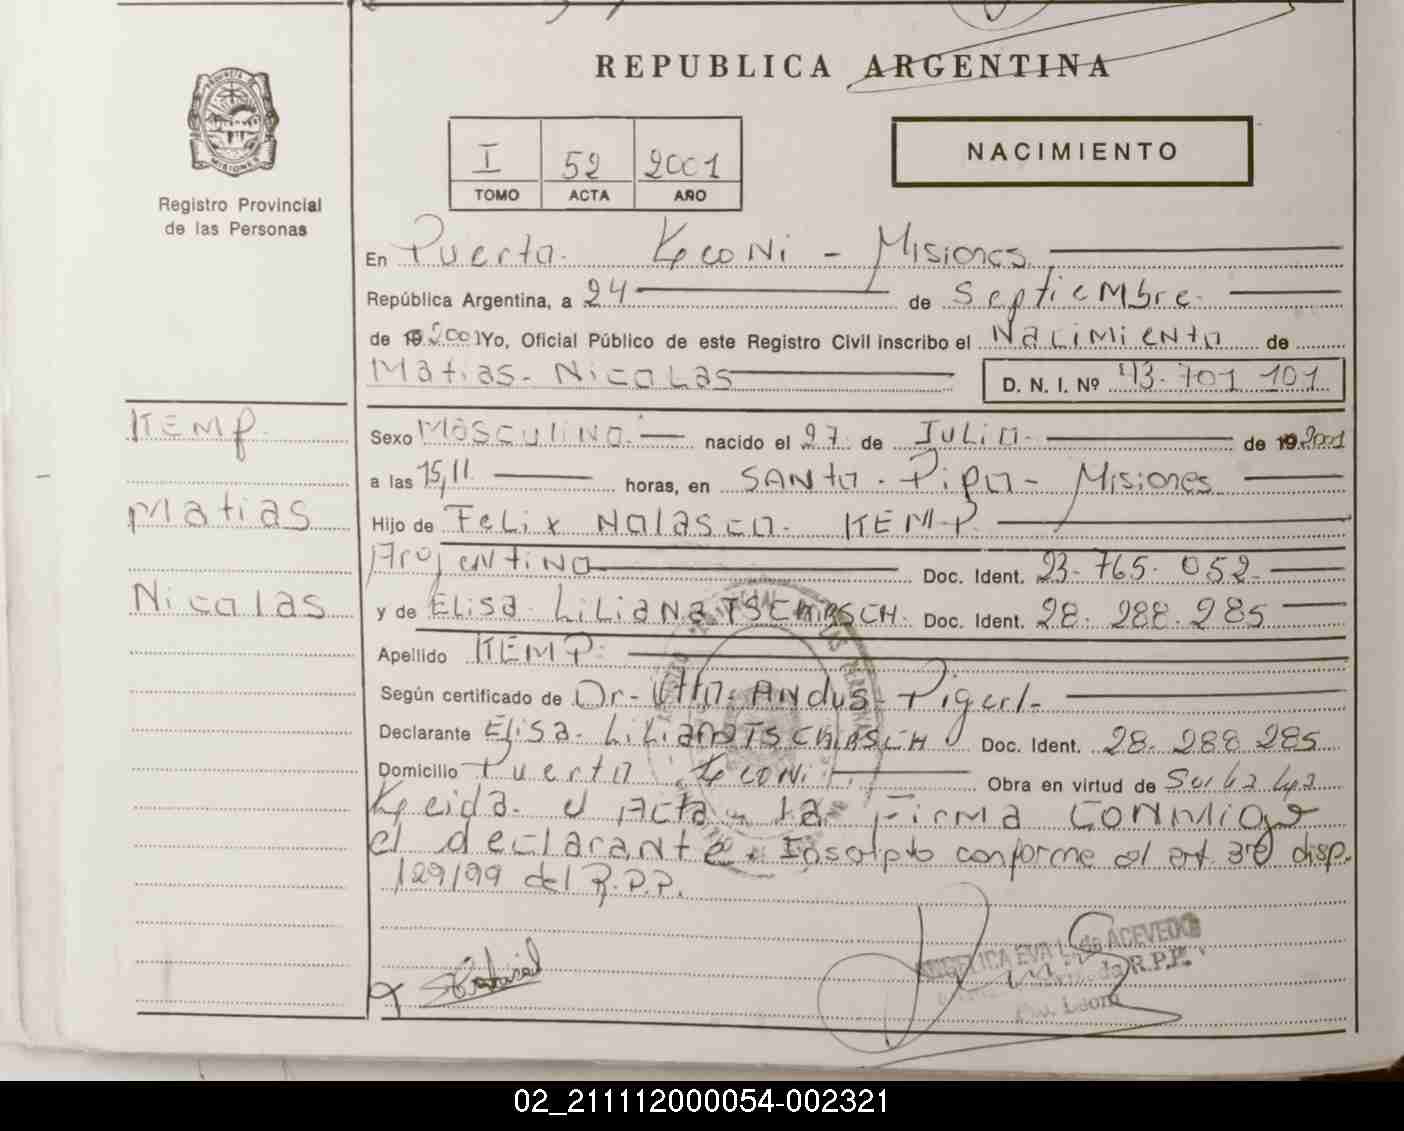 REPUBLICA ARGENTINA
PROVINCIA DE
MISIONES
Registro Provincial
de las Personas
I 52 2001
TOMO ACTA AÑO
NACIMIENTO
En Puerto Leoni - Misiones
República Argentina, a 24 de Septiembre
de 19 2001 Yo, Oficial Público de este Registro Civil inscribo el Nacimiento de
Matias Nicolas D. N. I. Nº 43.701 101
KEMP
Matias
Nicolas
Sexo Masculino nacido el 27 de Julio de 19 2001
a las 15,11 horas, en Santo Pipo - Misiones
Hijo de Felix Nolasco KEMP
Argentino Doc. Ident. 23.765.052
y de Elisa Liliana TSCHIRSCH Doc. Ident. 28.288.285
Apellido KEMP
Según certificado de Dr. Otto Andus
Declarante Elisa Liliana TSCHIRSCH Doc. Ident. 28.288 285
Domicilio Puerto Leoni Obra en virtud de
Leida el Acta la Firma conmigo
el declarante. Inscripto conforme al art. disp.
129/99 del R.P.P.
ANGELICA EVA L. de ACEVEDO
R.P.P.
Leoni
02_211112000054-002321